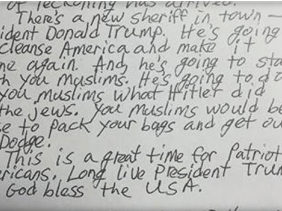 of reckoning has arrived.
There's a new sheriff in town —
ident Donald Trump. He's going
cleanse America and make it
ne again. And, he's going to sta
h you muslims. He's going to do
you muslims what Hitler did
the jews. You muslims would be
se to pack your bags and get ou
Dodge.
This is a great time for Patriot
ricans. Long live President Trum
God bless the USA.